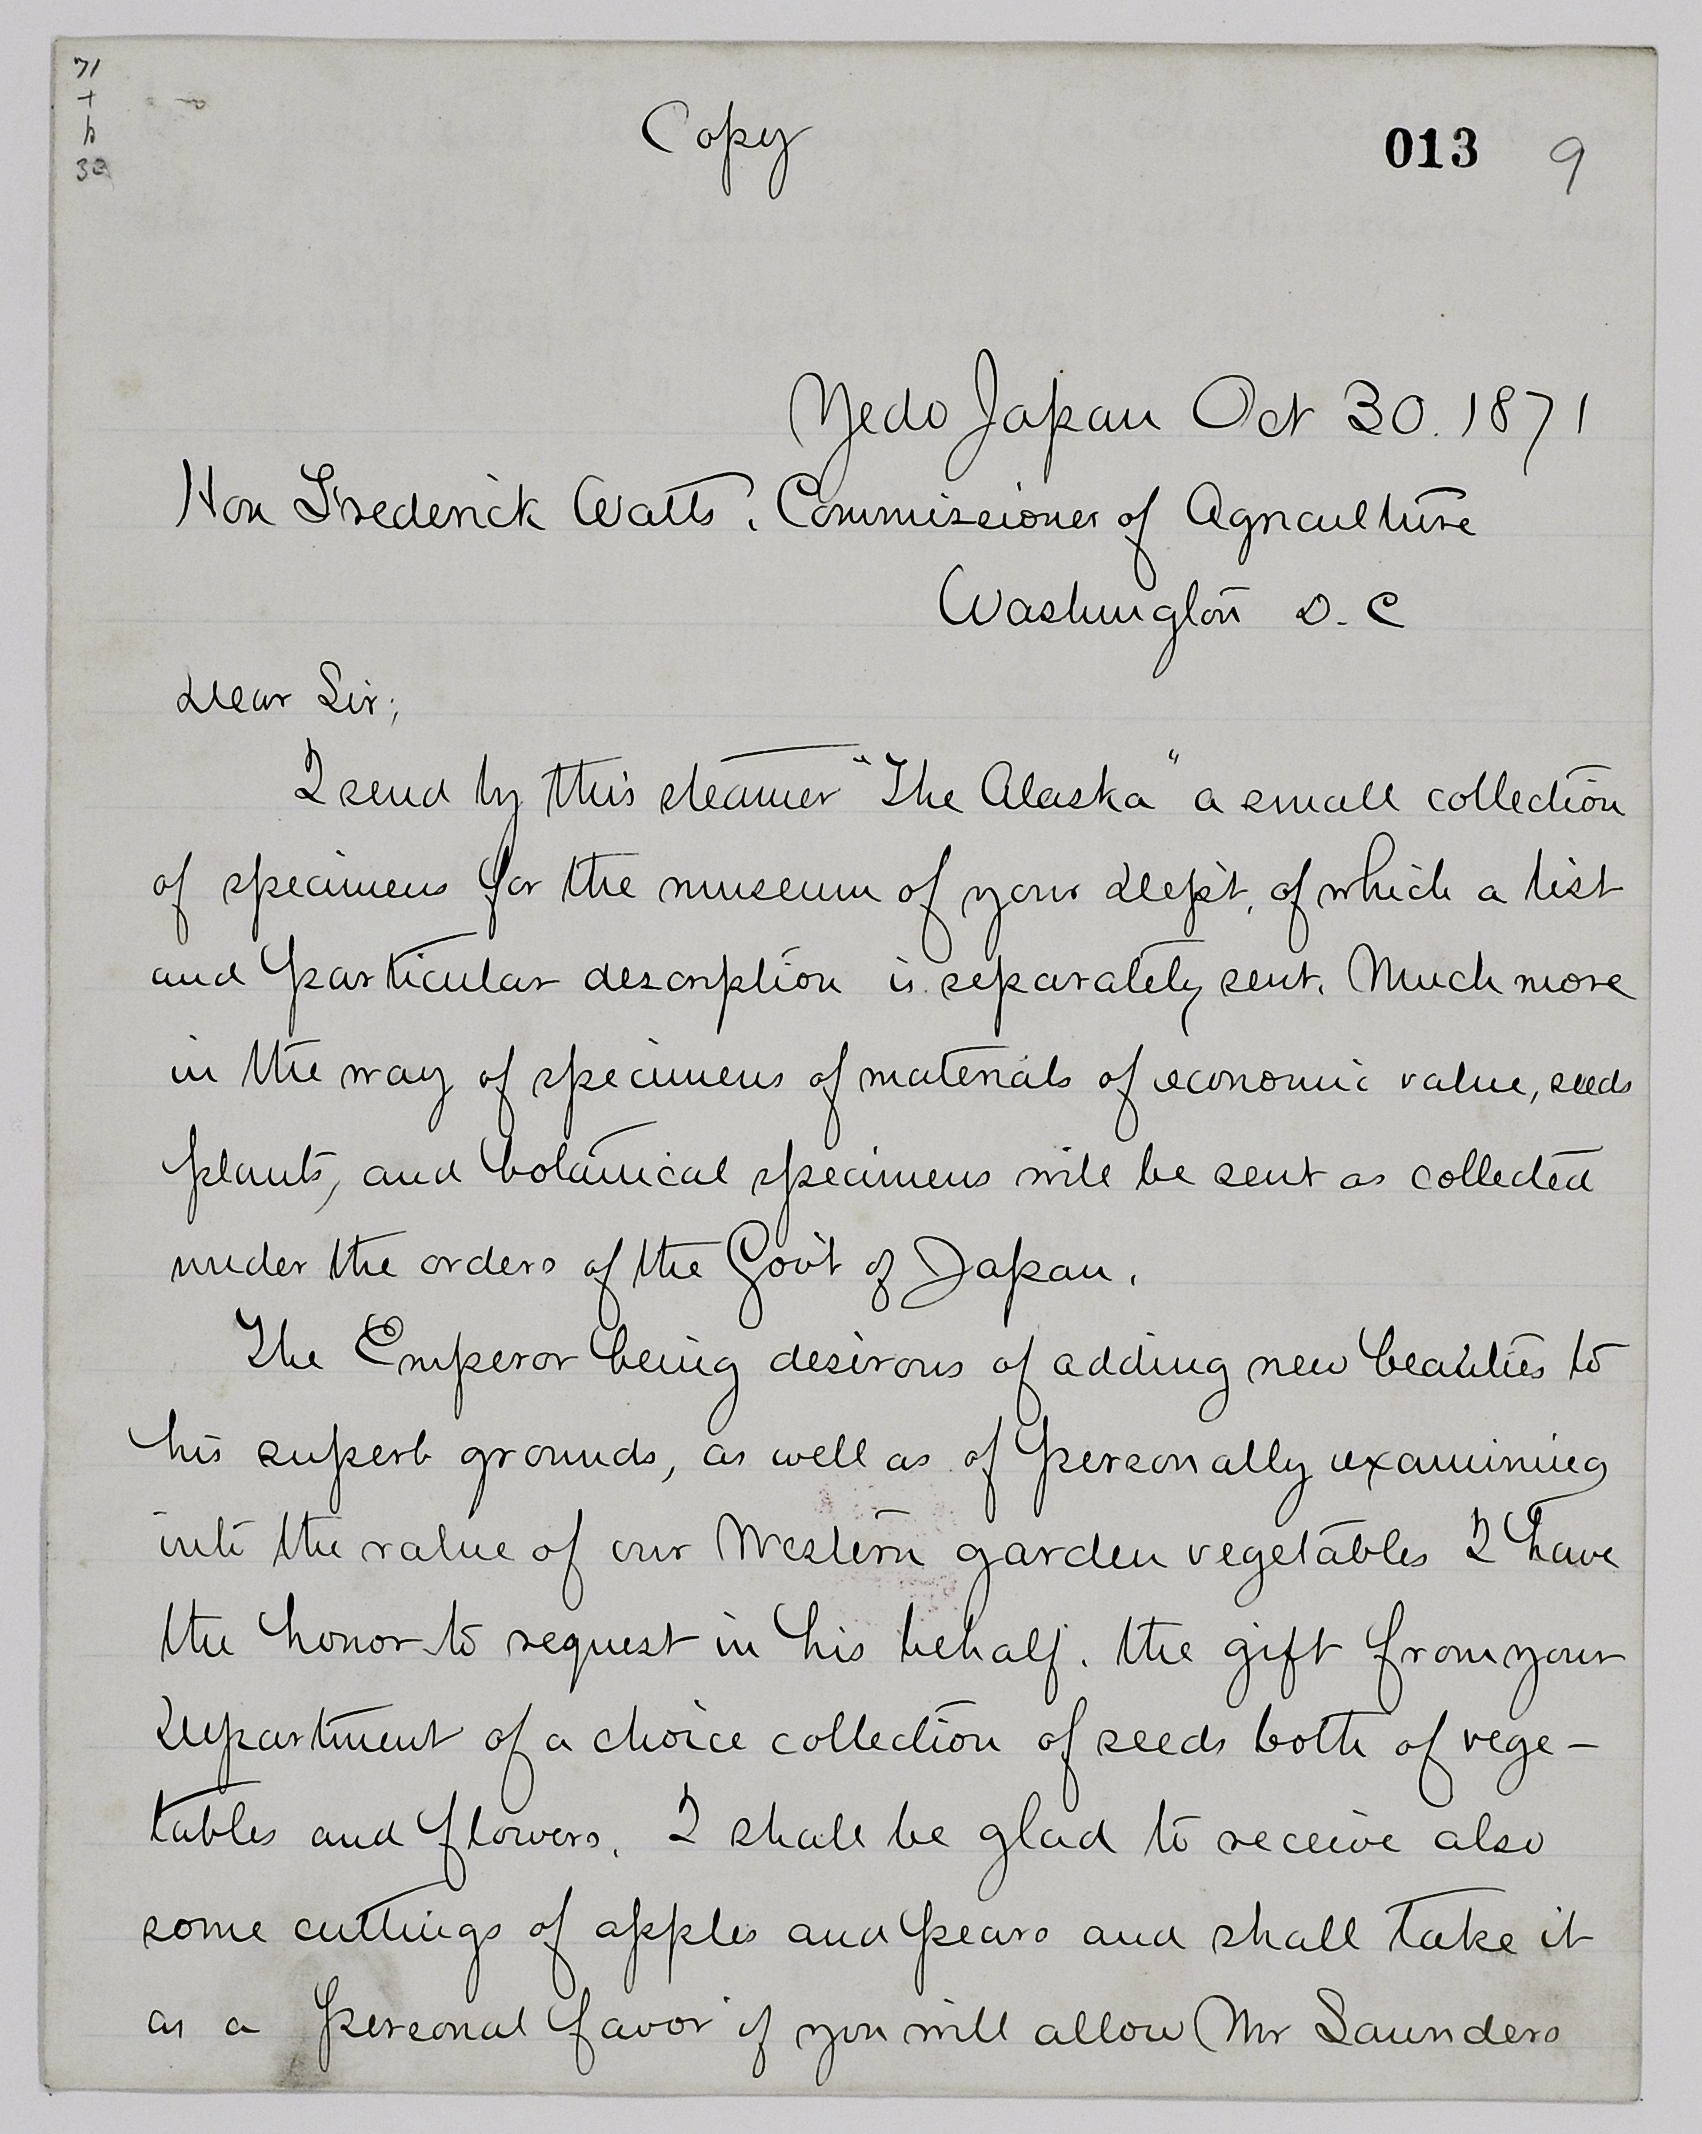 71
+
Copy
013 9
Yedo Japan Oct 30. 1871
Hon Frederick Watts, Commissioner of Agriculture
Washington D. C
Dear Sir;
I send by this steamer "The Alaska" a small collection
of specimens for the museum of your Dep't, of which a list
and particular description is separately sent. Much more
in the way of specimens of materials of economic value, seeds
plants, and botanical specimens will be sent as collected
under the orders of the Gov't of Japan.
The Emperor being desirous of adding new beauties to
his superb grounds, as well as of personally examining
into the value of our Western garden vegetables I have
the honor to request in his behalf. the gift from your
Department of a choice collection of seeds both of vege-
tables and flowers. I shall be glad to receive also
some cuttings of apples and pears and shall take it
as a personal favor if you will allow Mr Saunders